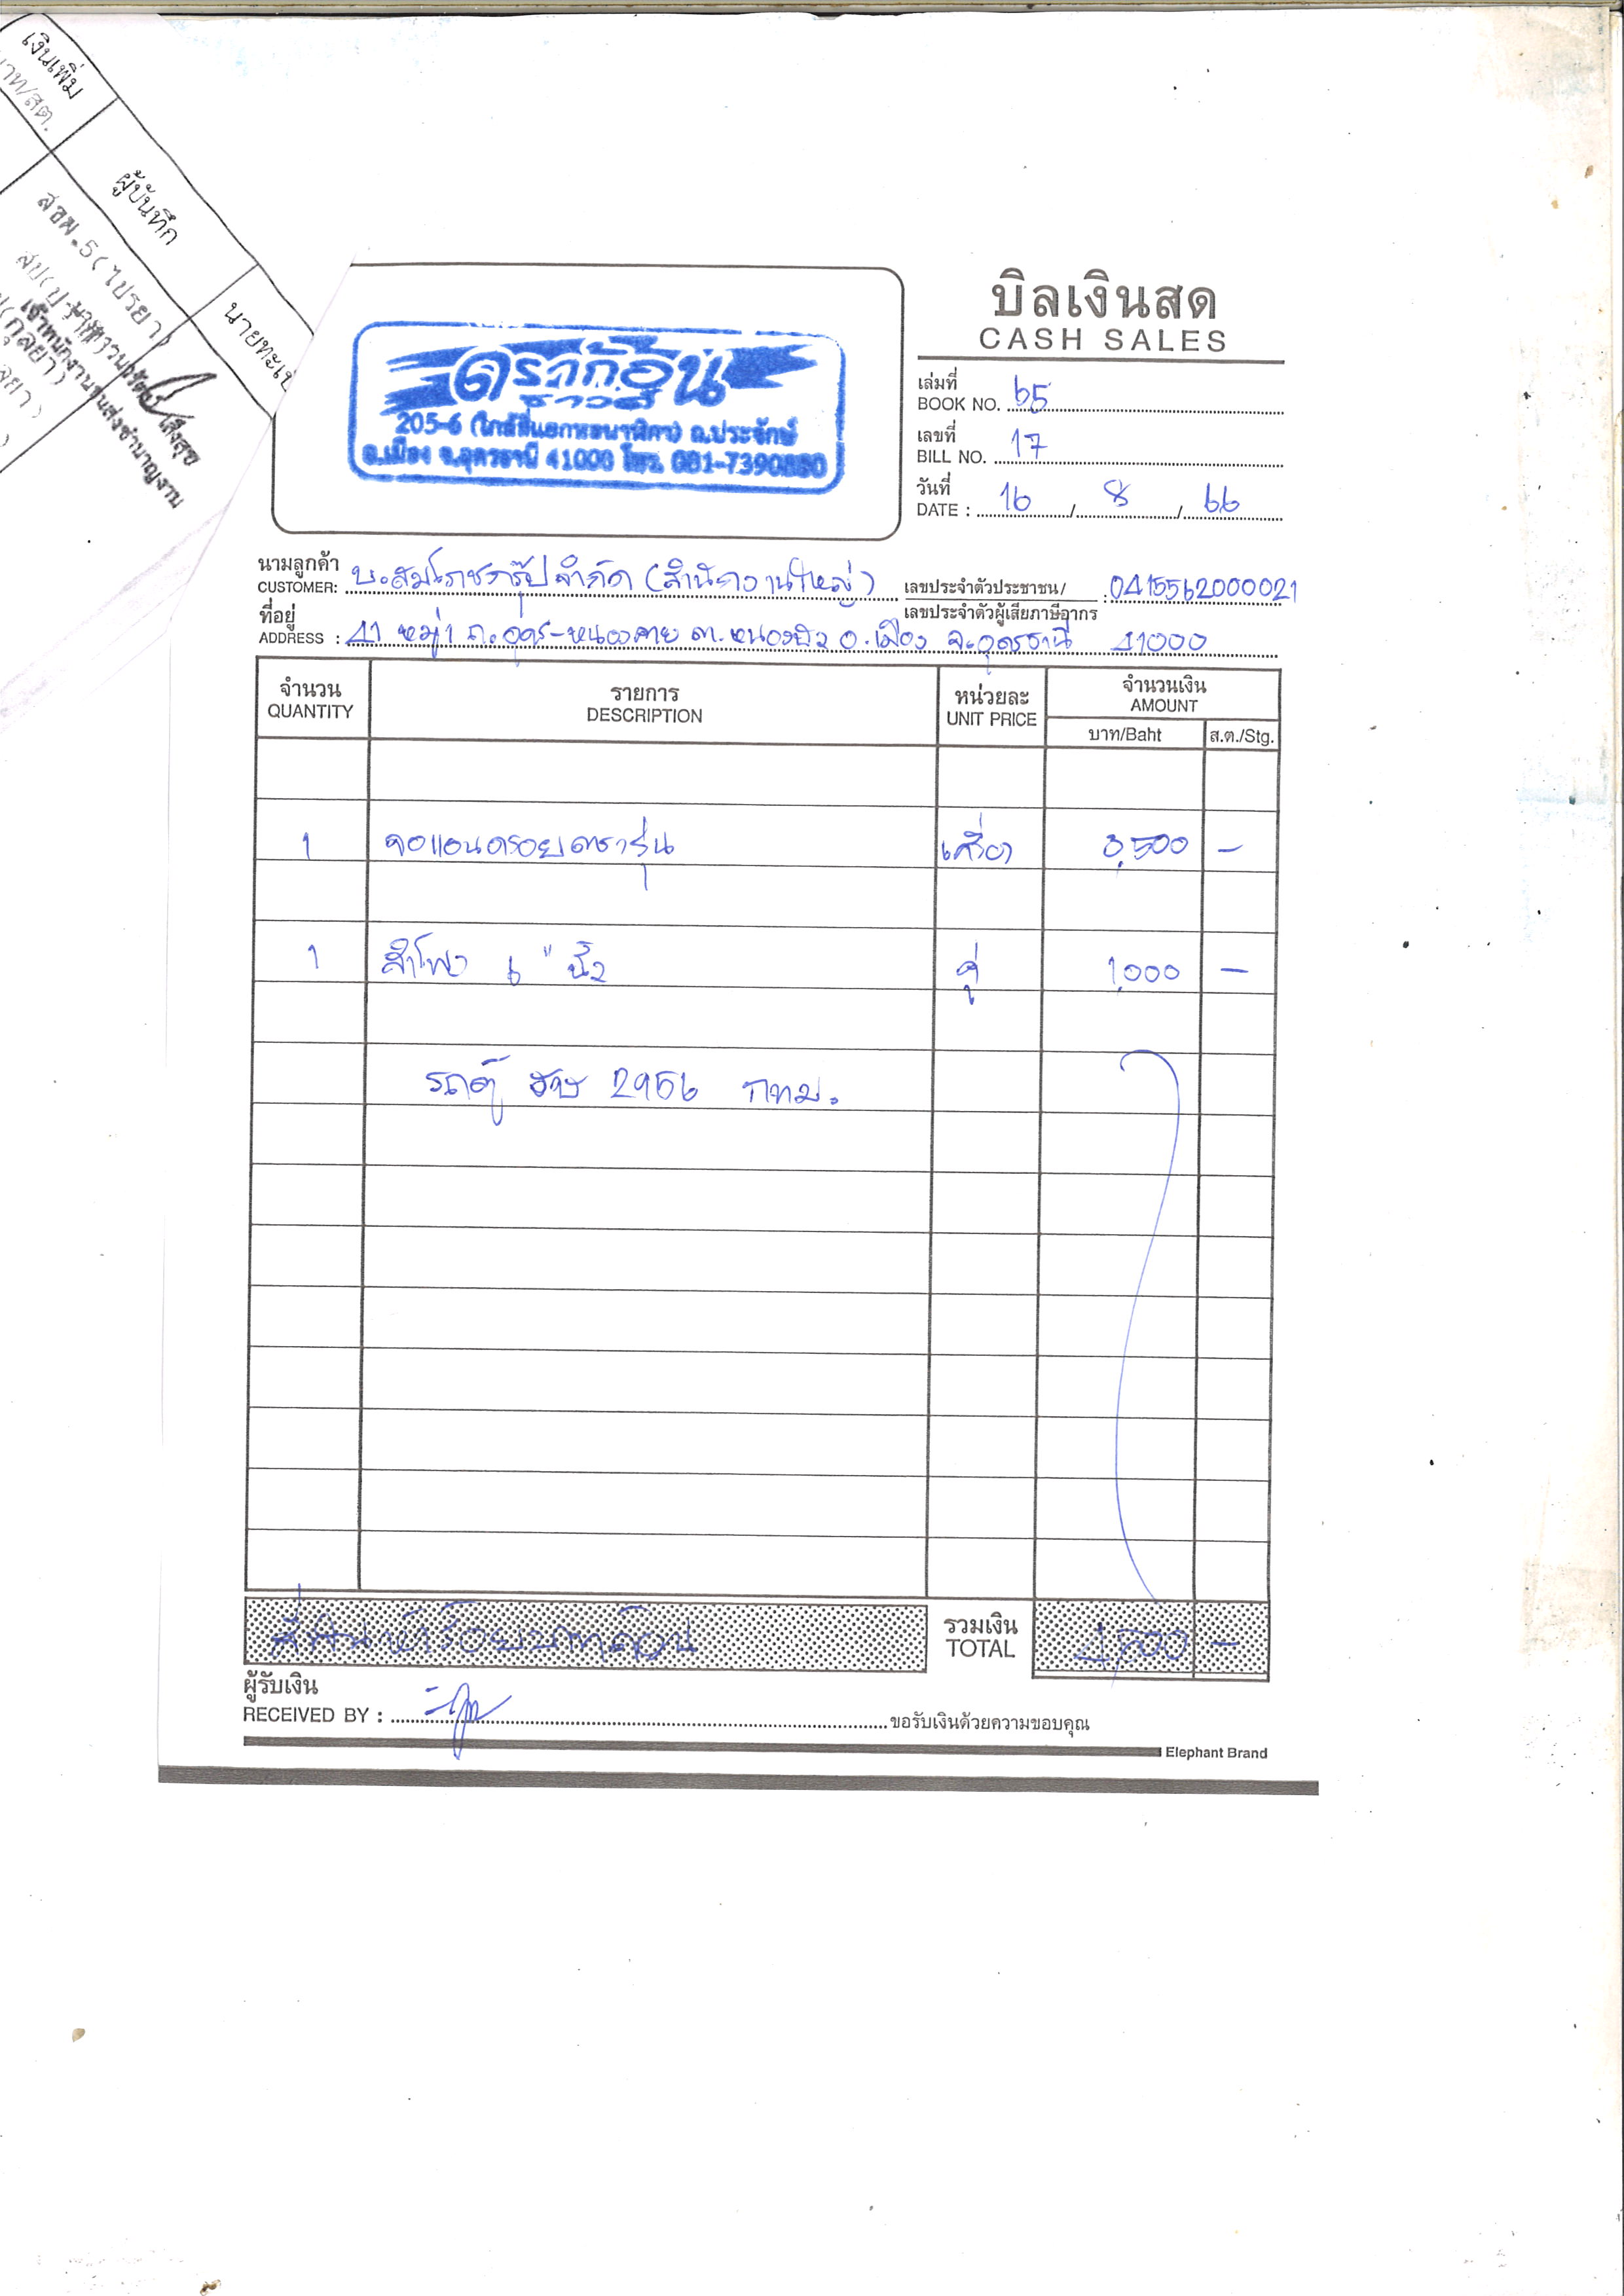 เงินเพิ่ม
บาท/สต.
ผู้บันทึก
นายทะเบ
สอพ.5(ไปรยา)
เจ้าพนักงานขนส่งชำนาญงาน
บิลเงินสด
CASH SALES
ดราก้อน
ซาวด์
205-6 (ใกล้สี่แยกหอนาฬิกา) ถ.ประจักษ์
อ.เมือง จ.อุดรธานี 41000 โทร. 081-7390880
เล่มที่
BOOK NO. 65
เลขที่
BILL NO. 17
วันที่
DATE : 16 / 8 / 66
นามลูกค้า
CUSTOMER: บ.สมโภชกรุ๊ปจำกัด (สำนักงานใหญ่) เลขประจำตัวประชาชน/ 0415562000021
เลขประจำตัวผู้เสียภาษีอากร
ที่อยู่
ADDRESS : 41 หมู่1 ถ.อุดร-หนองคาย ต.หนองบัว อ.เมือง จ.อุดรธานี 41000
จำนวน รายการ หน่วยละ จำนวนเงิน
QUANTITY DESCRIPTION UNIT PRICE AMOUNT
บาท/Baht ส.ต./Stg.
1 จอแอนดรอยตรงรุ่น เครื่อง 3,500 -
1 ลำโพง 6" นิ้ว คู่ 1,000 -
รถตู้ ฮาษ 2956 กทม.
สี่พันห้าร้อยบาทถ้วน รวมเงิน 4,500 -
TOTAL
ผู้รับเงิน
RECEIVED BY : ขอรับเงินด้วยความขอบคุณ
Elephant Brand